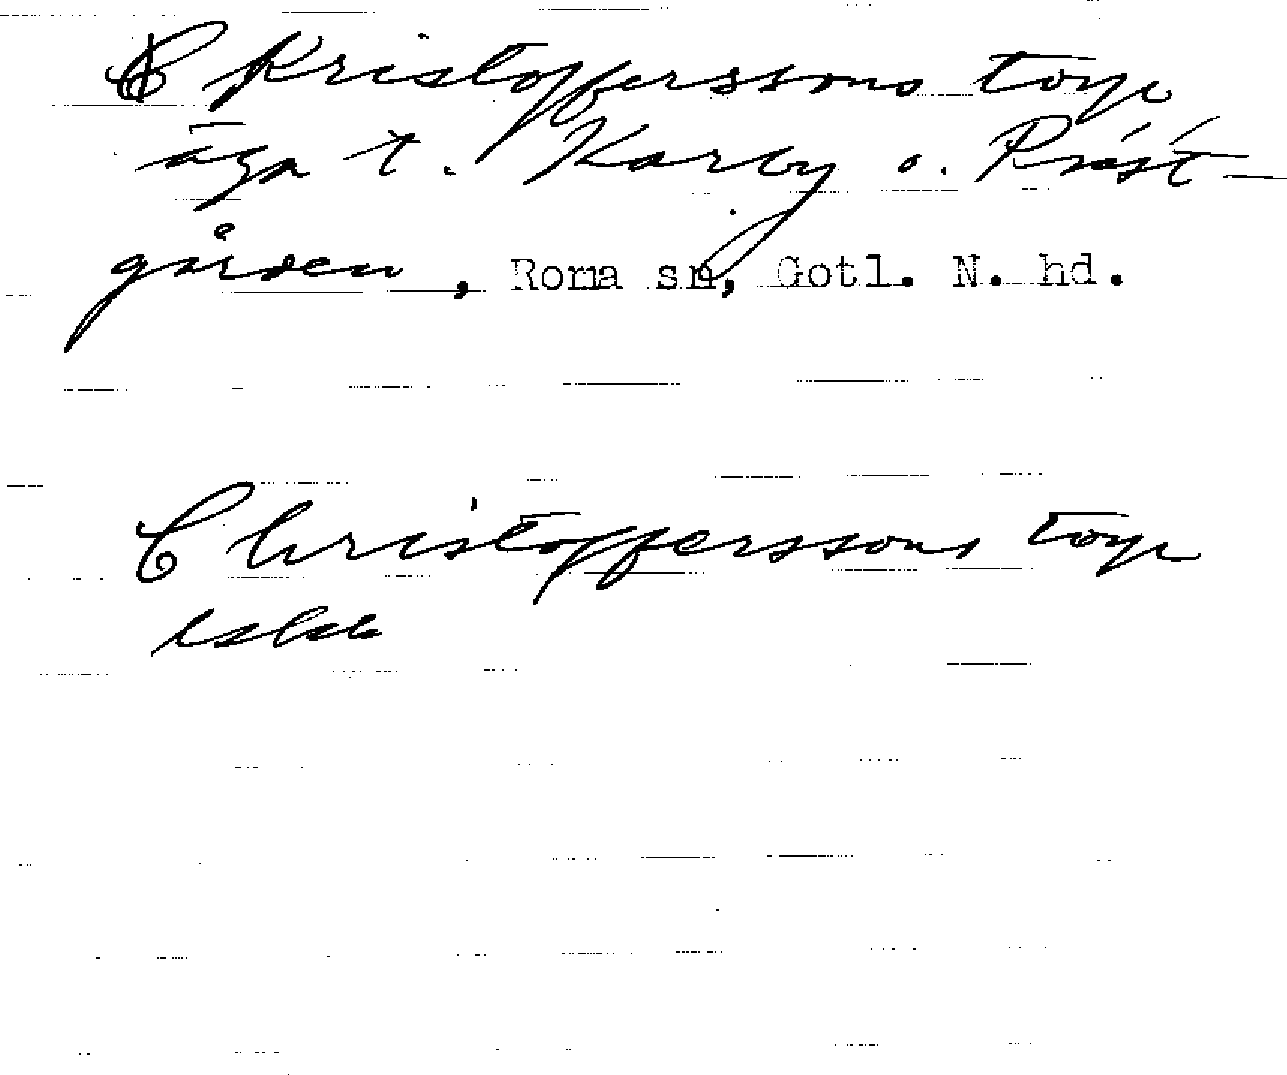 Kristofferssons torp
äga t. Karby o. Präst-
gården, Roma sn, Gotl. N. hd.
Christofferssons torp